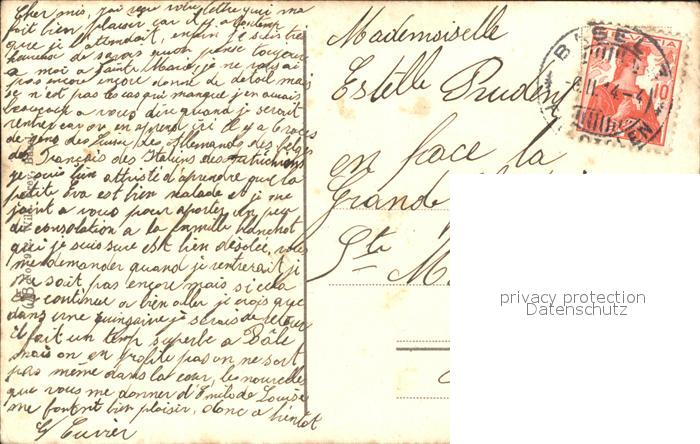 Cher mis, j'ai reçu votre lettre qui ma
fait bien plaisir car il y a lontemp
que je l'attendait, enfin je suis très
heureuse de savoir qu'on pense toujours
a moi a Sainte Marie, je ne vous ai
pas encore donné de detail mais
se n'est pas les cas qui manque j'en aurais
beaucoup a vous dire quand je serait
rentrer car on en aprend ici il y a
de gens des Suisse des Allemands des belges
des Français des Italiens des Autrichiens
je suis bien attristé d'aprendre que la
petite Eva est bien malade et je me
joint a vous pour aporter un peu
de consolation a la famille blanchot
qui je suis sure est bien désolée, vous
me demander quand je rentrerait, je
ne sait pas encore mais si cela
continue a bien aller je crois que
dans une quinzaine je serais de retour
il fait un temp superbe a Bâle
mais on en profite pas on ne sort
pas même dans la cour, les nouvelle
que vous me donner d'Emile de Louise
me fontent bien plaisir, donc a bientot
Cuvier
Mademoiselle
Estelle Prudent
en face la
Grande
Ste M
BASEL
HELVETIA
10
privacy protection
Datenschutz